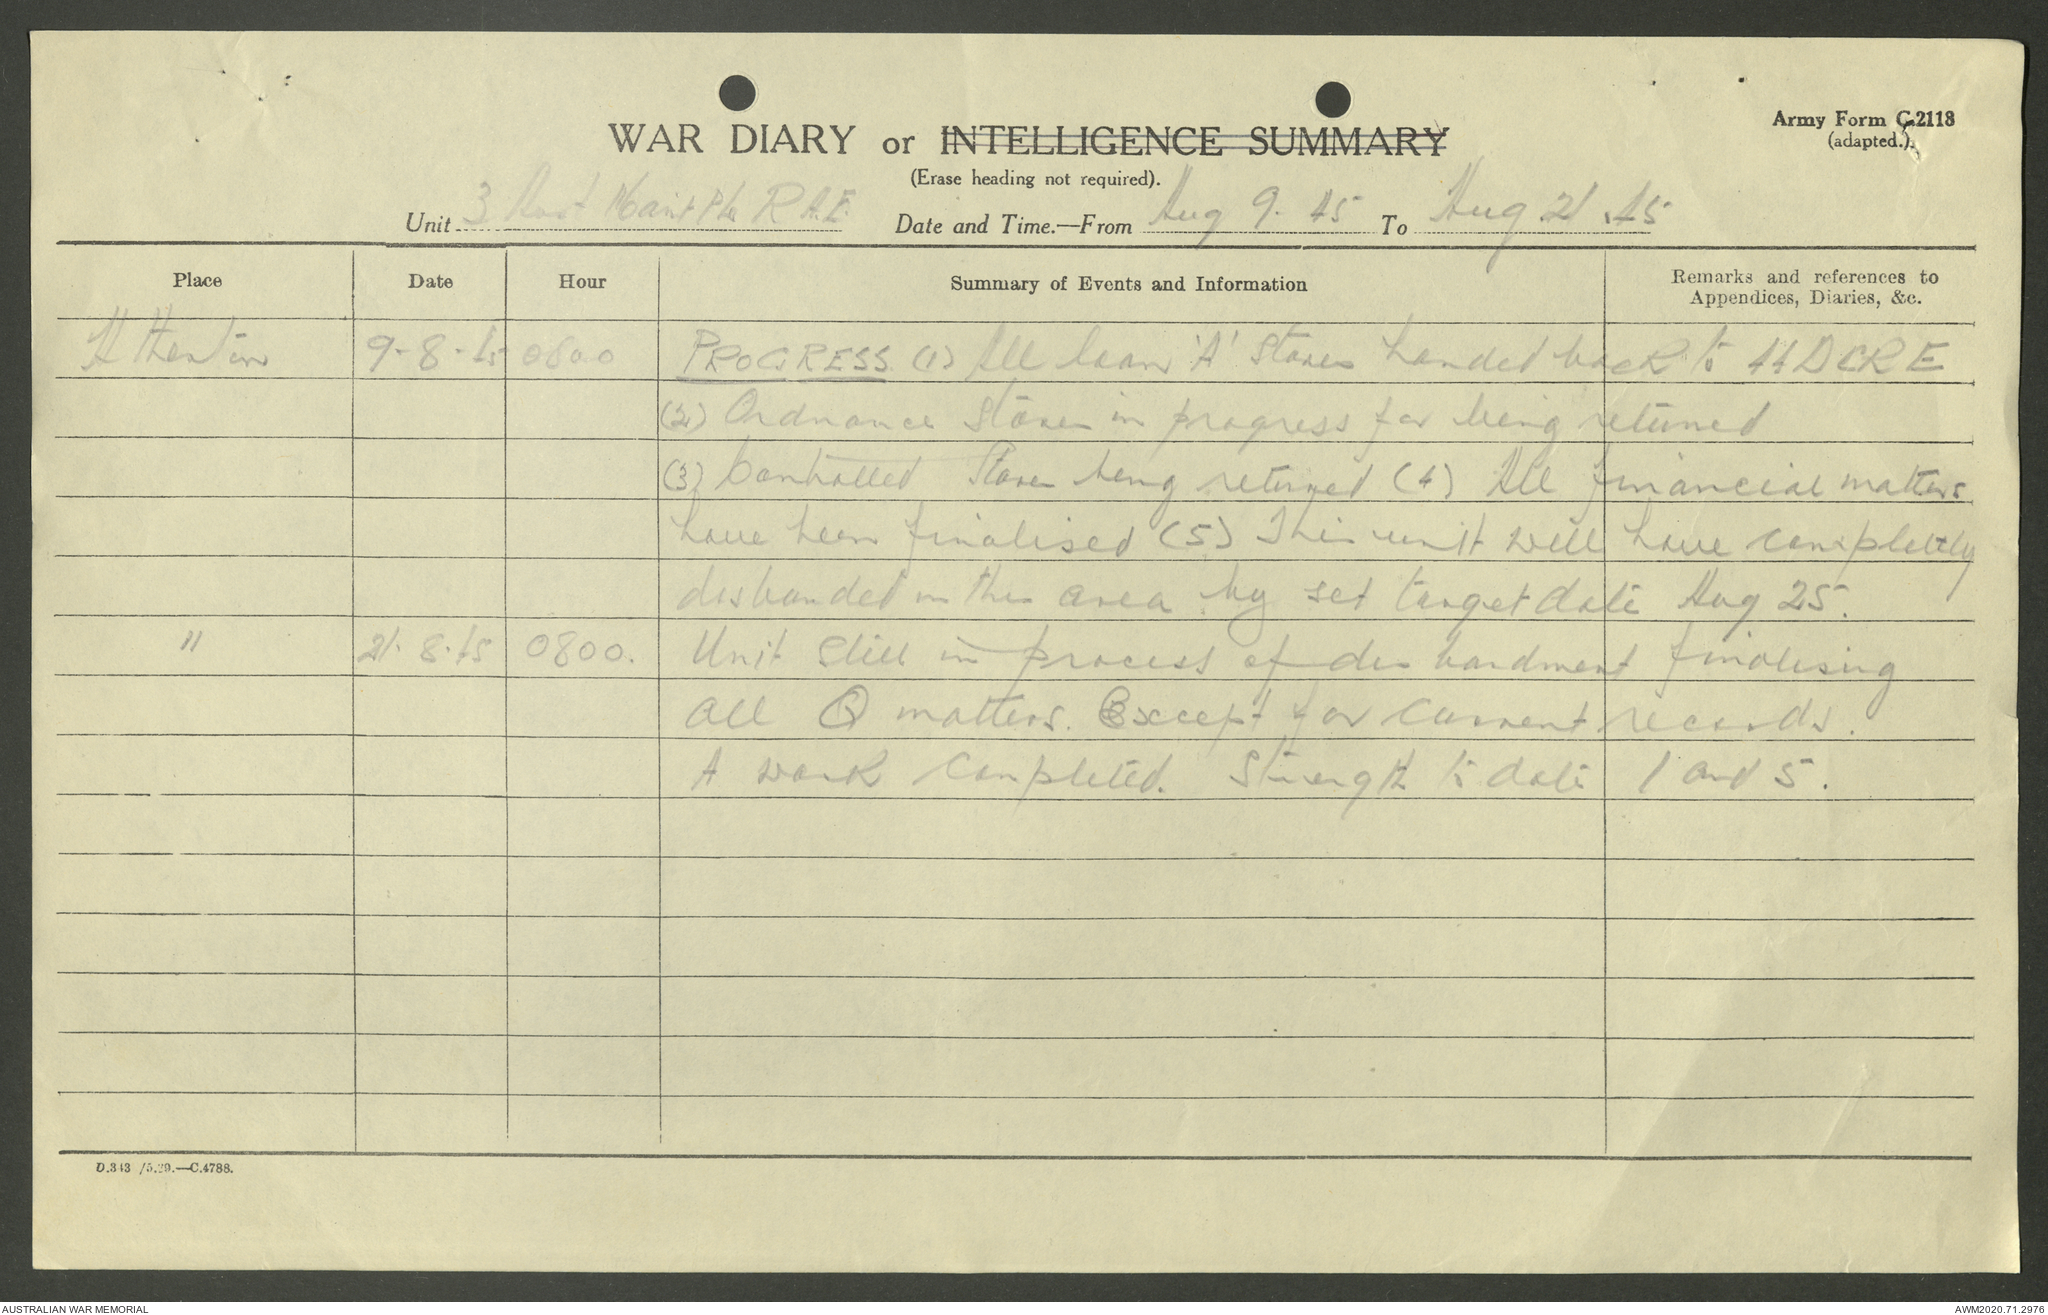 Army Form C.2118
(adapted.)
WAR DIARY or INTELLIGENCE SUMMARY
(Erase heading not required).
Unit 3 Aust Maint Pl R.A.E. Date and Time.—From Aug 9. 45 To Aug 21. 45
Place Date Hour Summary of Events and Information Remarks and references to
Appendices, Diaries, &c.
Atherton 9-8-45 0800 PROGRESS (1) All loan 'A' Stores handed back to 44 DCRE
(2) Ordnance Stores in progress for being returned
(3) Controlled Stores being returned (4) All financial matters
have been finalised (5) This unit will have completely
disbanded in this area by set target date Aug 25.
" 21.8.45 0800. Unit Still in process of disbandment finalising
all Q matters. Except for current records.
A work completed. Strength to date 1 and 5.
D.343 /5.29.—C.4788.
AUSTRALIAN WAR MEMORIAL AWM2020.71.2976